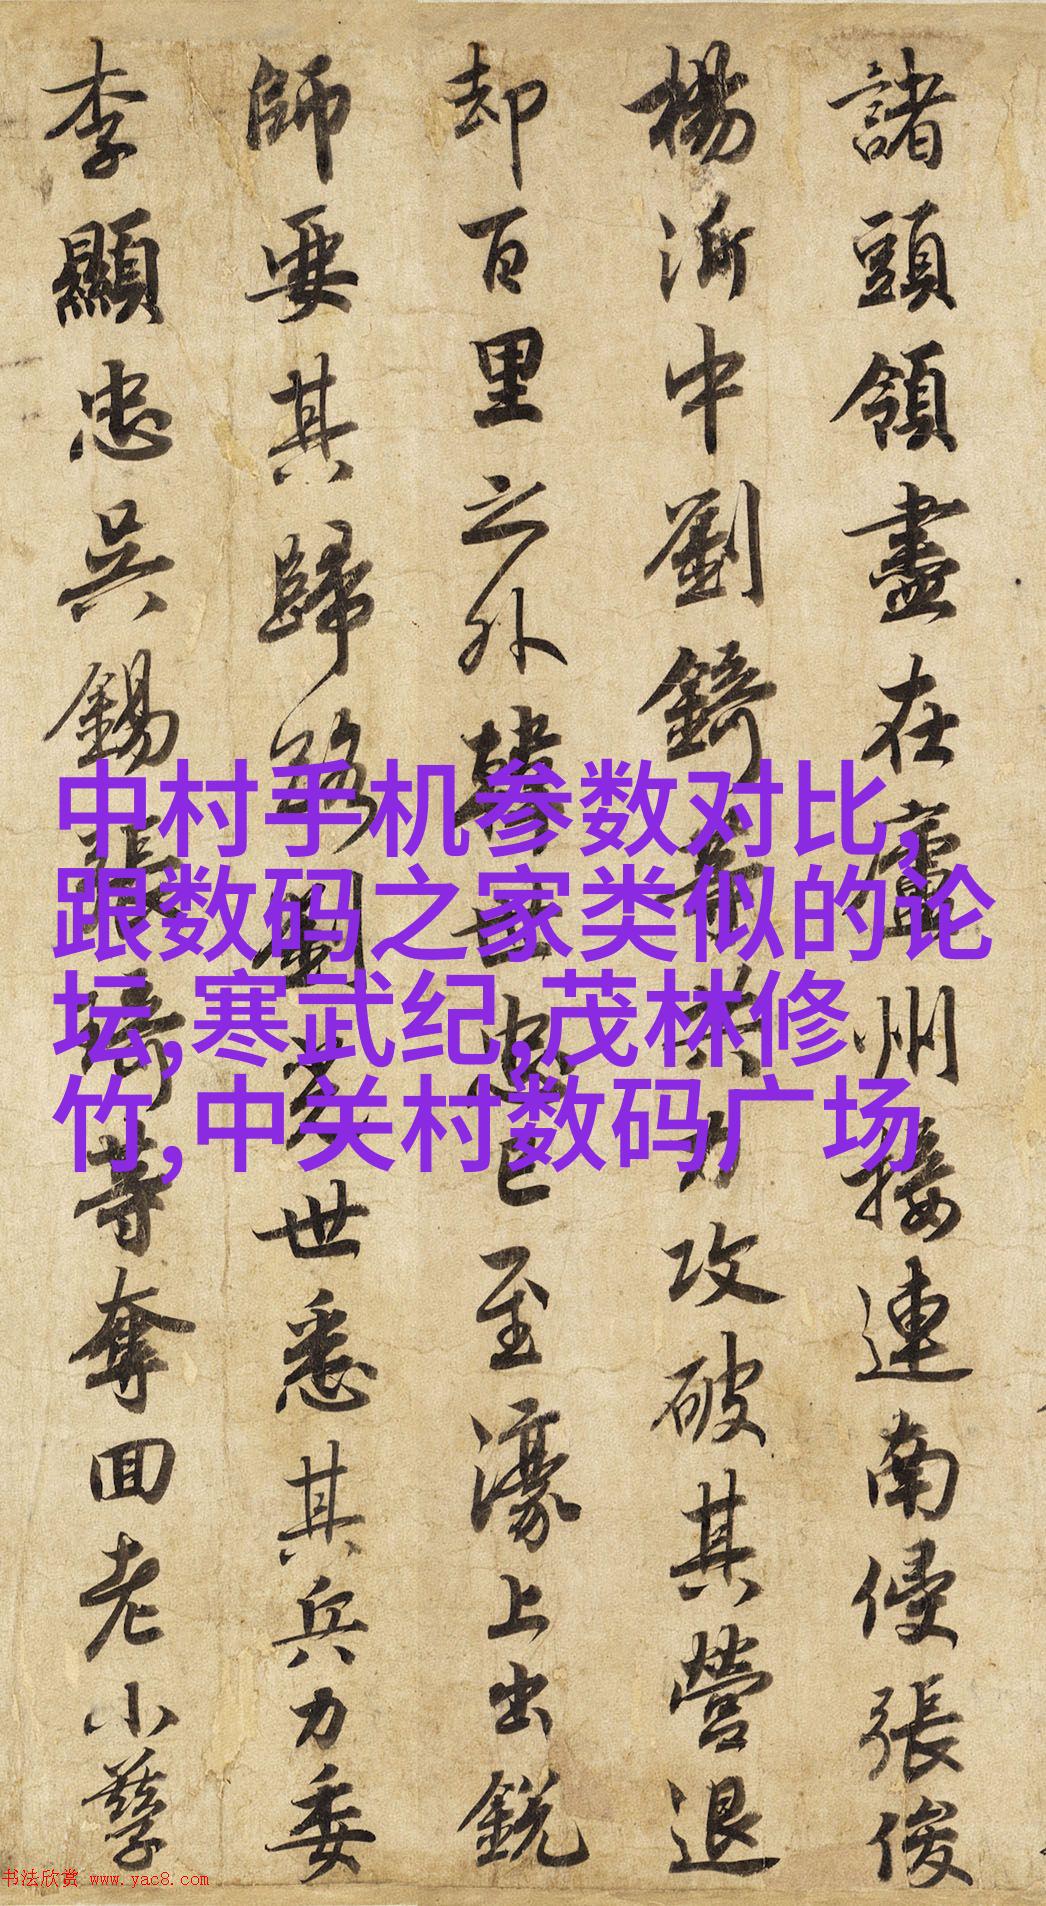 諸頭領盡在廬州接連南侵張俊
楊沂中劉錡等共力攻破其營退
却百里之外韓世忠已至濠上出銳
師要其歸路劉光世悉其兵力委
李顯忠吳錫張琦等奪回老小孳
中村手机参数对比,
跟数码之家类似的论
坛,寒武纪,茂林修
竹,中关村数码广场
书法欣赏 www.yac8.com